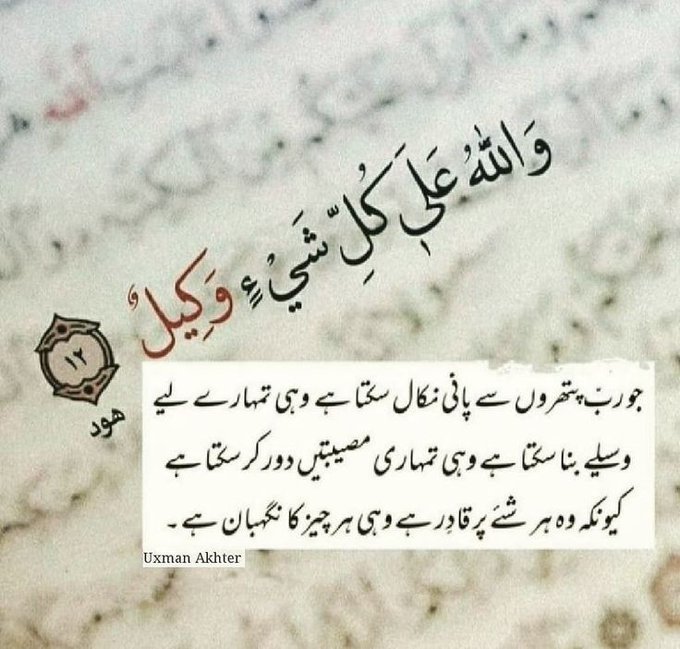 وَاللَّهُ عَلَىٰ كُلِّ شَيْءٍ وَكِيلٌ
١٢
هود
جو ربّ پتھروں سے پانی نکال سکتا ہے وہی تمہارے لیے
وسیلے بنا سکتا ہے وہی تمہاری مصیبتیں دور کر سکتا ہے
کیونکہ وہ ہر شئے پر قادِر ہے وہی ہر چیز کا نگہبان ہے۔
Uxman Akhter